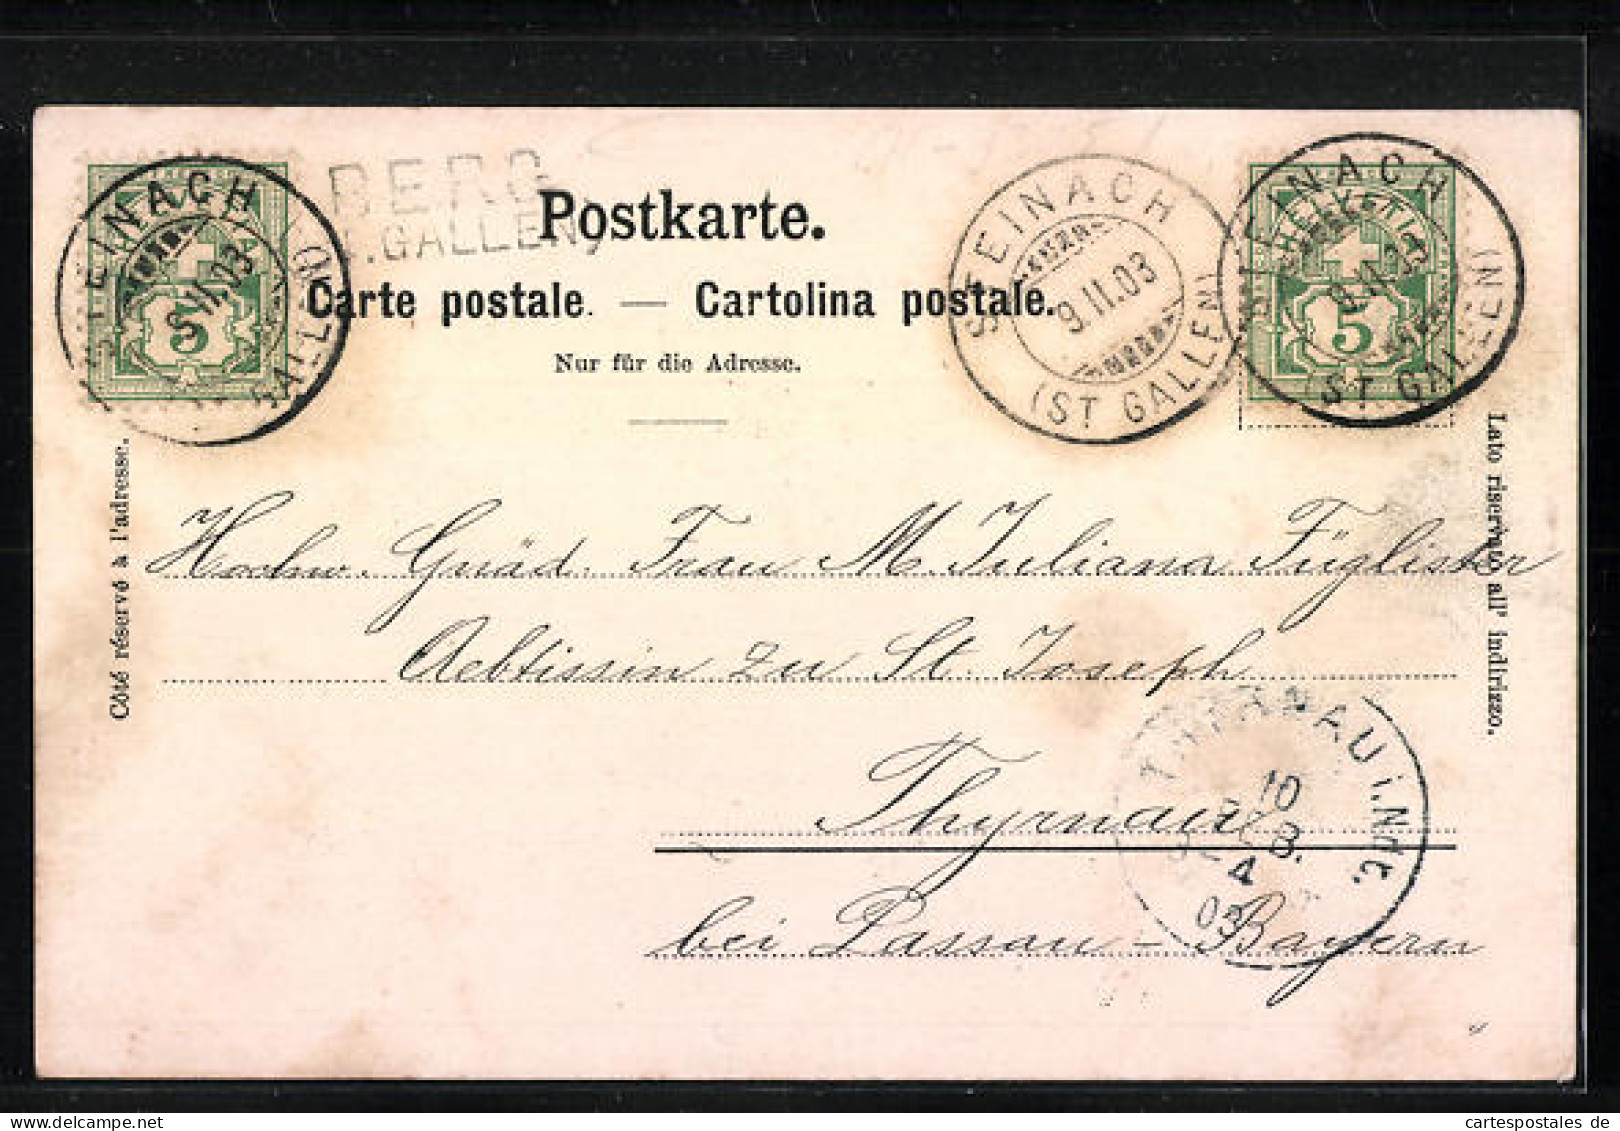 BERG
(ST. GALLEN)
Postkarte.
Carte postale. — Cartolina postale.
Nur für die Adresse.
STEINACH
9.II.03
(ST. GALLEN)
STEINACH
9.II.03
(ST GALLEN)
STEINACH
9.II.03
(ST GALLEN)
HELVETIA
5
5
Côté réservé à l'adresse.
Lato riservato all' indirizzo.
Hochw. Gnäd. Frau M. Juliana Füglister
Aebtissin zu St. Joseph
Thyrnau
bei Passau – Bayern
THYRNAU i. Ndb.
10
FEB.
4
03
cartespostales de
www.cartespostales.de